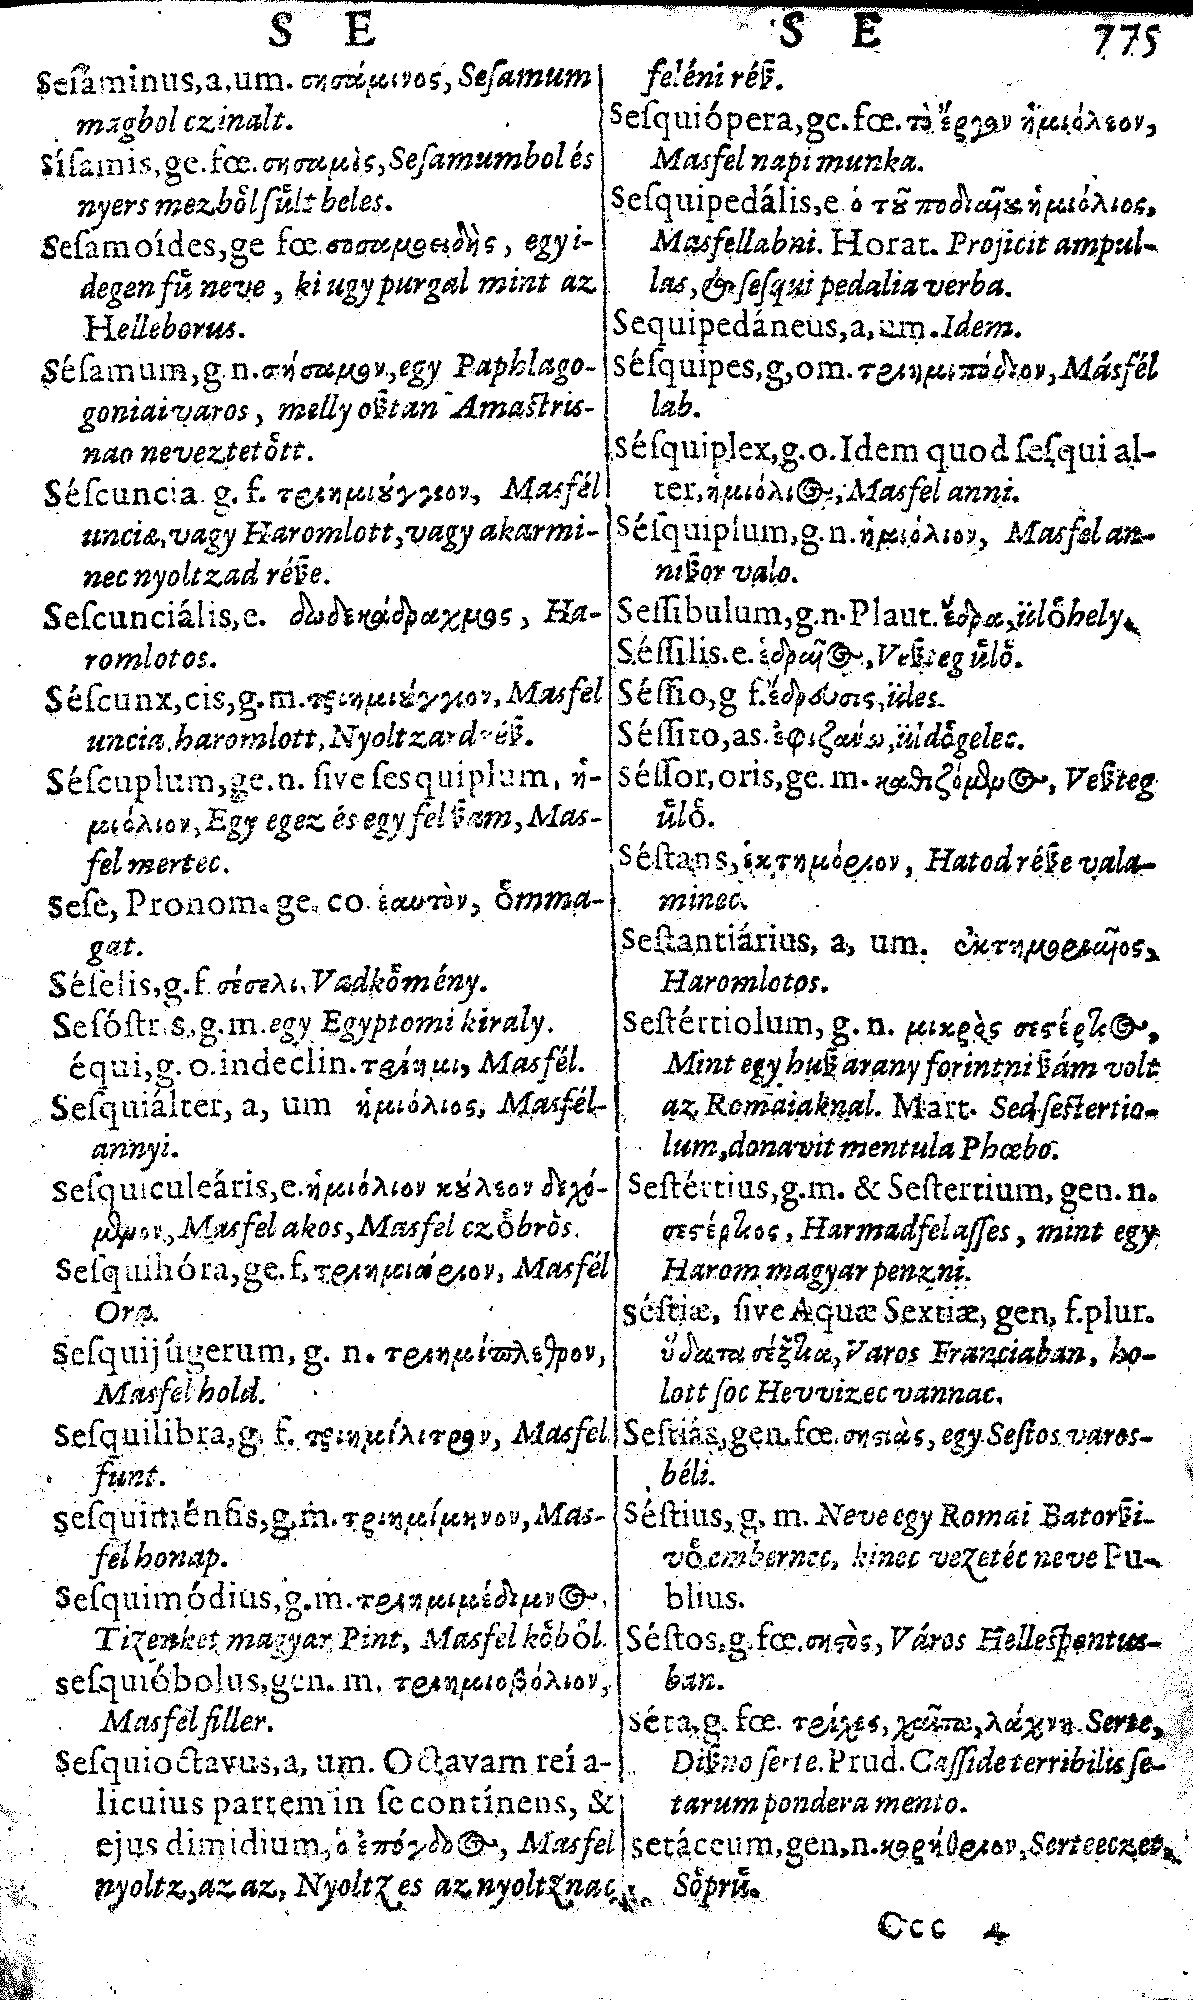 S E
S E 775
Seſáminus,a,um. σησάμινος, Seſamum
magbol czinalt.
Síſamis,ge.fœ.σησαμὶς,Seſamumbol és
nyers mezbo̊l ſu̇lt beles.
Seſamoídes,ge fœ.σησαμοειδὴς, egy i-
degen fů neve, ki ugy purgal mint az
Helleborus.
Séſamum,g.n.σήσαμον,egy Paphlago-
goniai varos, melly oẞtan Amaſtris-
nao neveztetőtt.
Séſcuncia g. f. τριημιούγγιον, Masfél
uncia,vagy Haromlott,vagy akarmi-
nec nyoltzad réẞe.
Seſcunciális,e. δωδεκάδραχμος, Ha-
romlotos.
Séſcunx,cis,g.m.τριημιούγγιον,Masfel
uncia,haromlott,Nyoltzad réẞ.
Séſcuplum,ge.n. ſive ſesquiplum, ἡ-
μιόλιον,Egy egez és egy fel ẞam,Mas-
fel mertec.
Seſe, Pronom. ge. co. ἑαυτὸν, őmma-
gat.
Séſelis,g.f. σέσελι.Vadkőmény.
Seſóſtris,g.m.egy Egyptomi kiraly.
équi,g. o.indeclin.τρίημι, Masfél.
Seſquiálter, a, um ἡμιόλιος, Masfél-
annyi.
Seſquiculeáris,e.ἡμιόλιον κούλεον δεχό-
μενον,Masfel akos,Masfel czőbrős.
Seſquihóra,ge.f.τριημιώριον, Masfél
Ora.
Seſquijúgerum, g. n. τριημίπλεθρον,
Masfel hold.
Seſquilibra,g. f. τριημίλιτρον, Masfel
funt.
Seſquimēnſis,g.m.τριημίμηνον,Mas-
fél honap.
Seſquimódius,g.m.τριημιμέδιμνος.
Tizenket magyar Pint, Masfel kőből.
seſquióbolus,gen. m. τριημιοβόλιον,
Masfel filler.
Seſquioctavus,a, um. Octavam rei a-
licuius partem in ſe continens, &
ejus dimidium,ὁ ἐπόγδοος, Masfel
nyoltz,az az, Nyoltz es az nyoltznac
feléni réẞ.
Seſquiópera,ge.fœ.τὸ ἔργον ἡμιόλεον,
Masfel napi munka.
Seſquipedális,e ὁ τοῦ ποδιαίου ἡμιόλιος,
Masfellabni. Horat. Projicit ampul-
las, & ſeſqui pedalia verba.
Sequipedáneus,a,um.Idem.
Séſquipes,g,om.τριημιπόδιον,Másfél
lab.
Séſquiplex,g.o.Idem quod ſeſqui al-
ter,ἡμιόλιος,Masfel anni.
Séſquiplum,g.n.ἡμιόλιον, Masfel an-
niẞor valo.
Seſſibulum,g.n.Plaut.ἕδρα,ülőhely.
Séſſilis.e.ἑδραῖος,Veẞteg űlő.
Séſſio,g f.ἕδρευσις,üles.
Séſſito,as.ἐφιζαύω,üldőgelec.
Séſſor,oris,ge.m.καθιζόμενος, Veẞteg
űlő.
Séſtans,ἑκτημόριον, Hatod réẞe vala-
minec.
Seſtantiárius, a, um. ἑκτημοριαῖος,
Haromlotos.
Seſtértiolum, g. n. μικρὸς σεστέρτιος,
Mint egy huẞ arany forintni ẞám volt
az Romaiaknal. Mart. Sed ſeſtertio-
lum,donavit mentula Phœbo.
Seſtértius,g.m. & Seſtertium, gen. n.
σεστέρτιος, Harmadfel aſſes, mint egy
Harom magyar penzni.
Séſtiæ, ſive Aquæ Sextiæ, gen, f.plur.
ὕδατα σέξτια,Varos Franciaban, ho-
lott ſoc Hevvizec vannac.
Seſtiás,gen.fœ.σηστιὰς,egy Seſtos varos-
béli.
Séſtius, g. m. Neve egy Romai Batorẞi-
vő embernec, kinec vezetéc neve Pu-
blius.
Séſtos,g.fœ.σηστὸς, Város Helleſpontus-
ban.
Séta,g. fœ. τρίχες,χαίτη,λάχνη.Serte,
Diẞno ſerte.Prud.Caſſide terribilis ſe-
tarum pondera mento.
setáceum,gen,n.κορήθριον,Serteeczet,
Sőprű.
Ccc 4